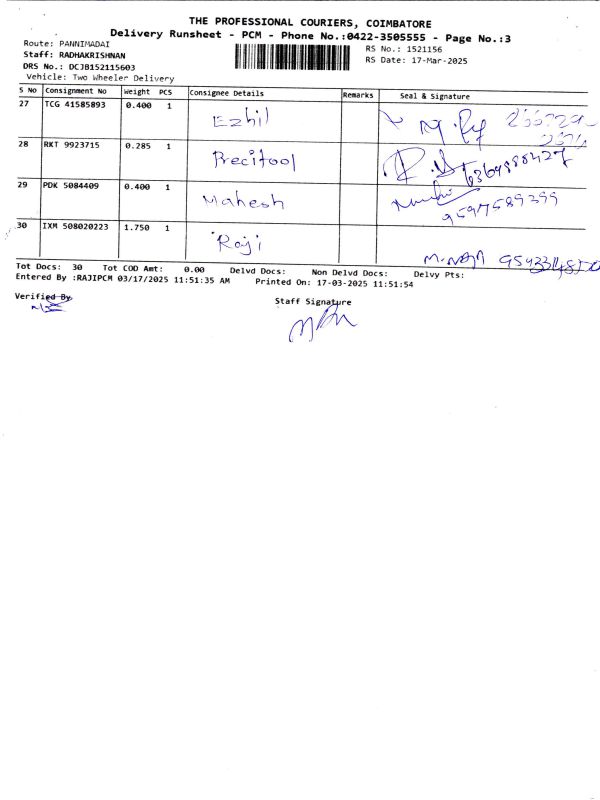 THE PROFESSIONAL COURIERS, COIMBATORE
Delivery Runsheet - PCM - Phone No.:0422-3505555 - Page No.:3
Route: PANNIMADAI
Staff: RADHAKRISHNAN
DRS No.: DCJB152115603
Vehicle: Two Wheeler Delivery
RS No.: 1521156
RS Date: 17-Mar-2025
S No Consignment No Weight PCS Consignee Details Remarks Seal & Signature
27 TCG 41585893 0.400 1 Ezhil
28 RKT 9923715 0.285 1 Precitool
29 PDK 5084409 0.400 1 Mahesh 9597589399
30 IXM 508020223 1.750 1 Raji
Tot Docs: 30 Tot COD Amt: 0.00 Delvd Docs: Non Delvd Docs: Delvy Pts:
Entered By :RAJIPCM 03/17/2025 11:51:35 AM Printed On: 17-03-2025 11:51:54
Verified By
Staff Signature